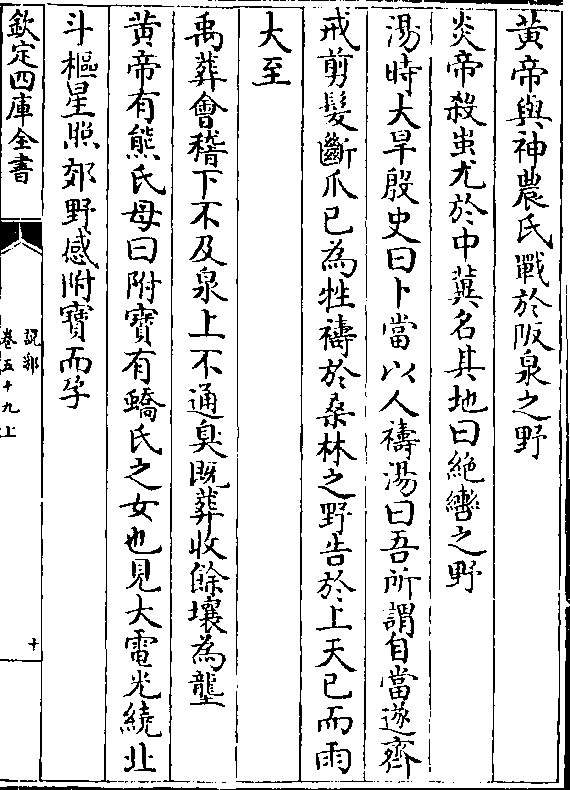 黄帝與神農氏戰於阪泉之野
炎帝殺蚩尤於中冀名其地曰絶轡之野
湯時大旱殷史曰卜當以人禱湯曰吾所謂自當遂齊
戒剪髮斷爪已為牲禱於桑林之野告於上天已而雨
大至
禹葬會稽下不及泉上不通臭既葬收餘壤為壟
黄帝有熊氏母曰附寶有蟜氏之女也見大電光繞北
斗樞星照郊野感附寶而孕
欽定四庫全書
說郛
卷五十九上
十